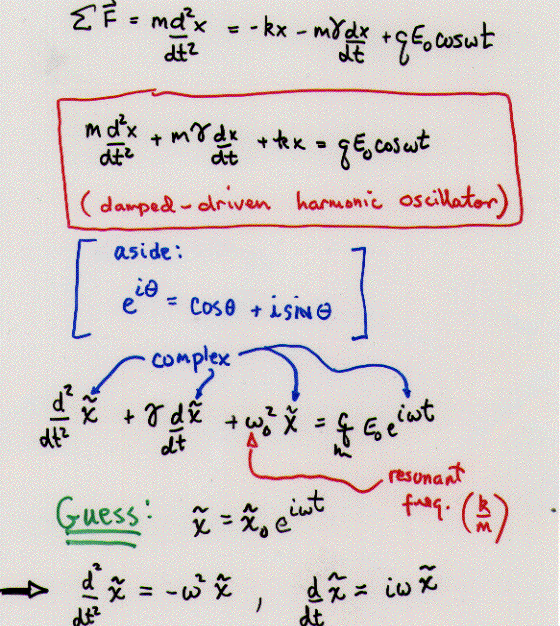 ∑ F⃗ = m d²x/dt² = -kx - mγ dx/dt + qE₀ cosωt
m d²x/dt² + mγ dx/dt + kx = qE₀ cosωt
(damped-driven harmonic oscillator)
aside:
e^{iθ} = cosθ + i sinθ
complex
d²/dt² x̃ + γ d/dt x̃ + ω₀² x̃ = q/m E₀ e^{iωt}
resonant
freq. (k/m)
Guess: x̃ = x̃₀ e^{iωt}
→ d²/dt² x̃ = -ω² x̃ , d/dt x̃ = iω x̃